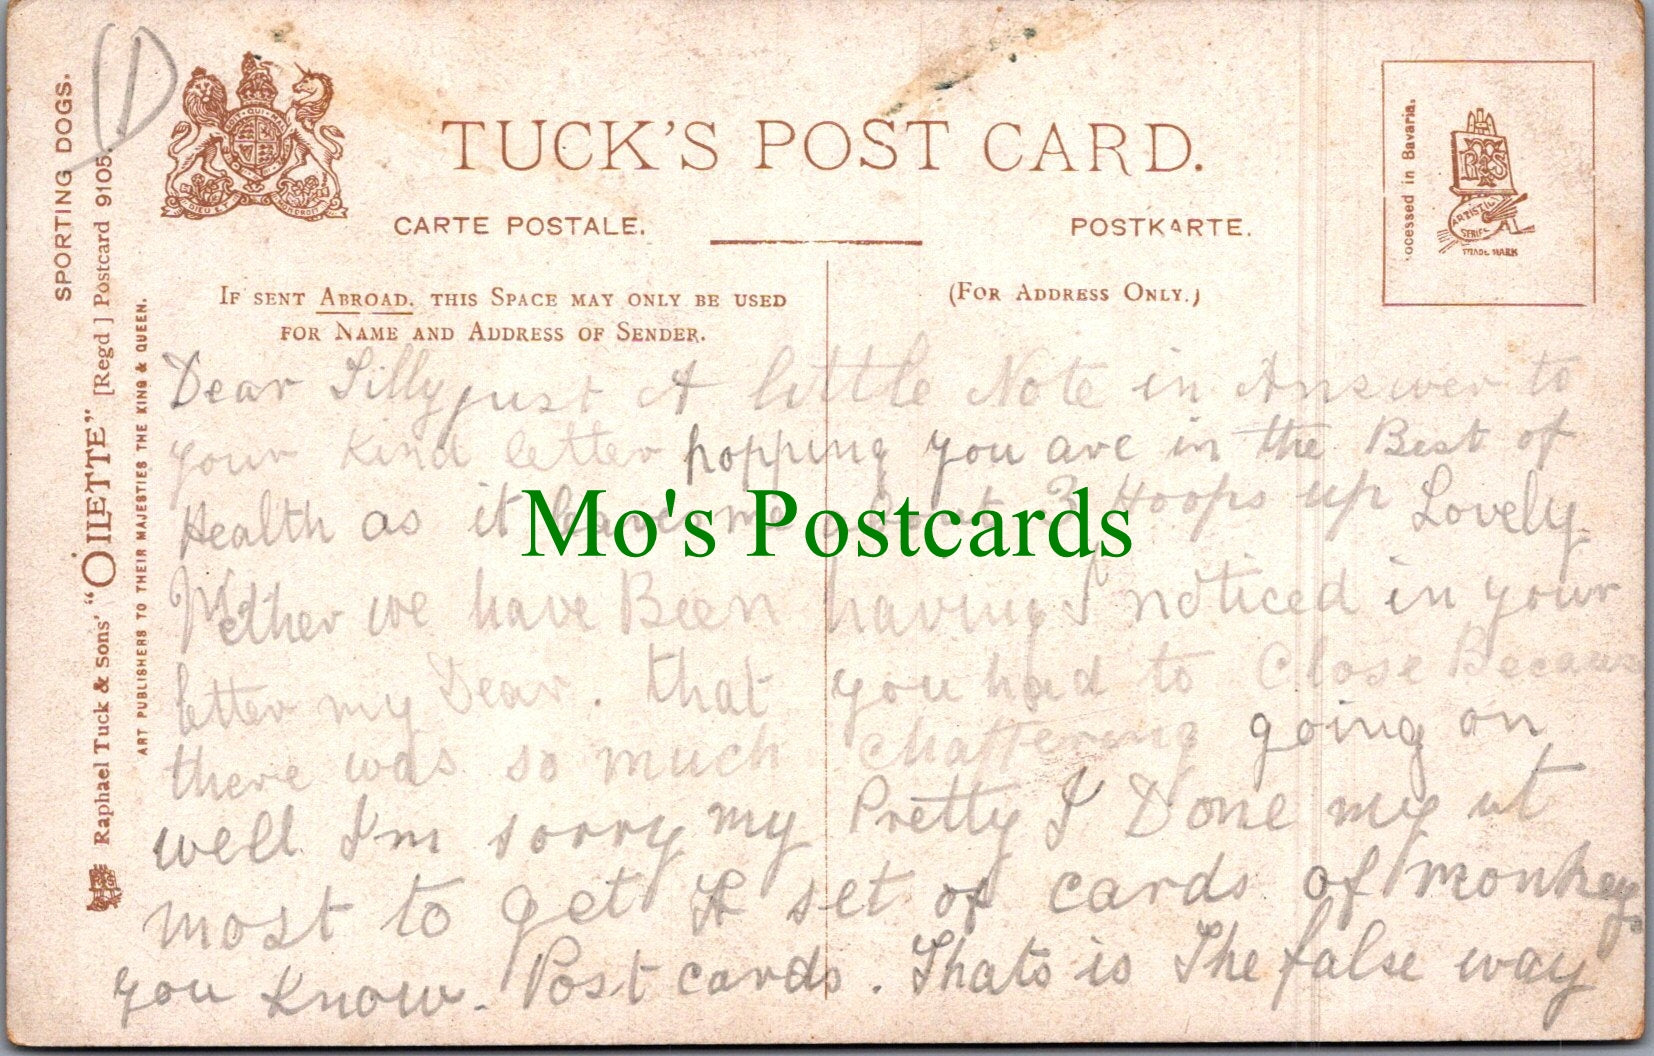 SPORTING DOGS.
Raphael Tuck & Sons' "OILETTE" [Regd] Postcard 9105.
ART PUBLISHERS TO THEIR MAJESTIES THE KING & QUEEN.
TUCK'S POST CARD.
CARTE POSTALE.
POSTKARTE.
IF SENT ABROAD, THIS SPACE MAY ONLY BE USED
FOR NAME AND ADDRESS OF SENDER.
(FOR ADDRESS ONLY.)
ocessed in Bavaria.
ARTISTIC
SERIES
TRADE MARK
Dear Lilly just A little Note in Answer to
your kind letter hopping you are in the Best of
Health as it leaves me 3 Hoops up Lovely
Wether we have Been having I noticed in your
letter my Dear. that you had to Close Becaus
there was so much chattering going on
well I'm sorry my Pretty I Done my ut
most to get A set of cards of monkeys
you know. Post cards. Thats is The false way
Mo's Postcards